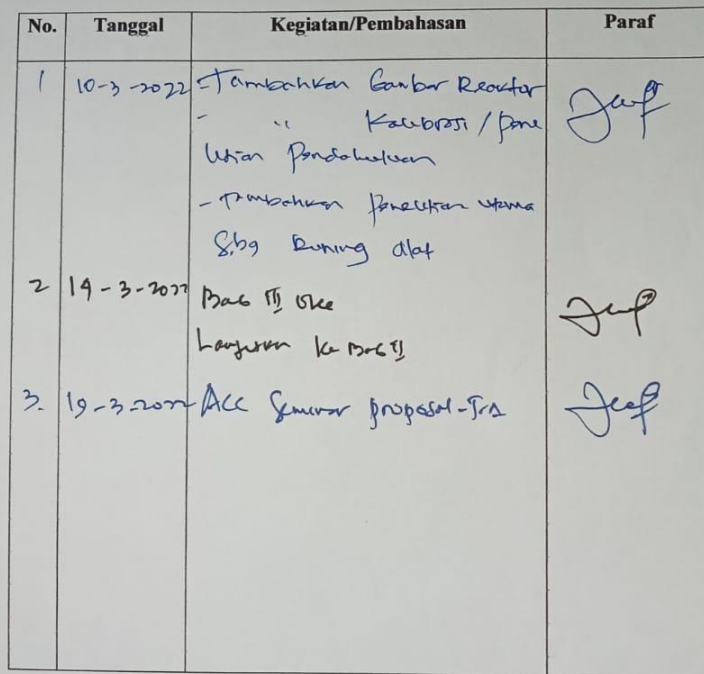 No. Tanggal Kegiatan/Pembahasan Paraf
1 10-3-2022 - Tambahkan Gambar Reaktor
- " Kalibrasi / pene
litian Pendahuluan
- Tambahkan penelitian utama
sbg Runing alat
2 14-3-2022 Bab III oke
Lanjutkan ke Bab II
3. 19-3-2022 ACC Seminar proposal-